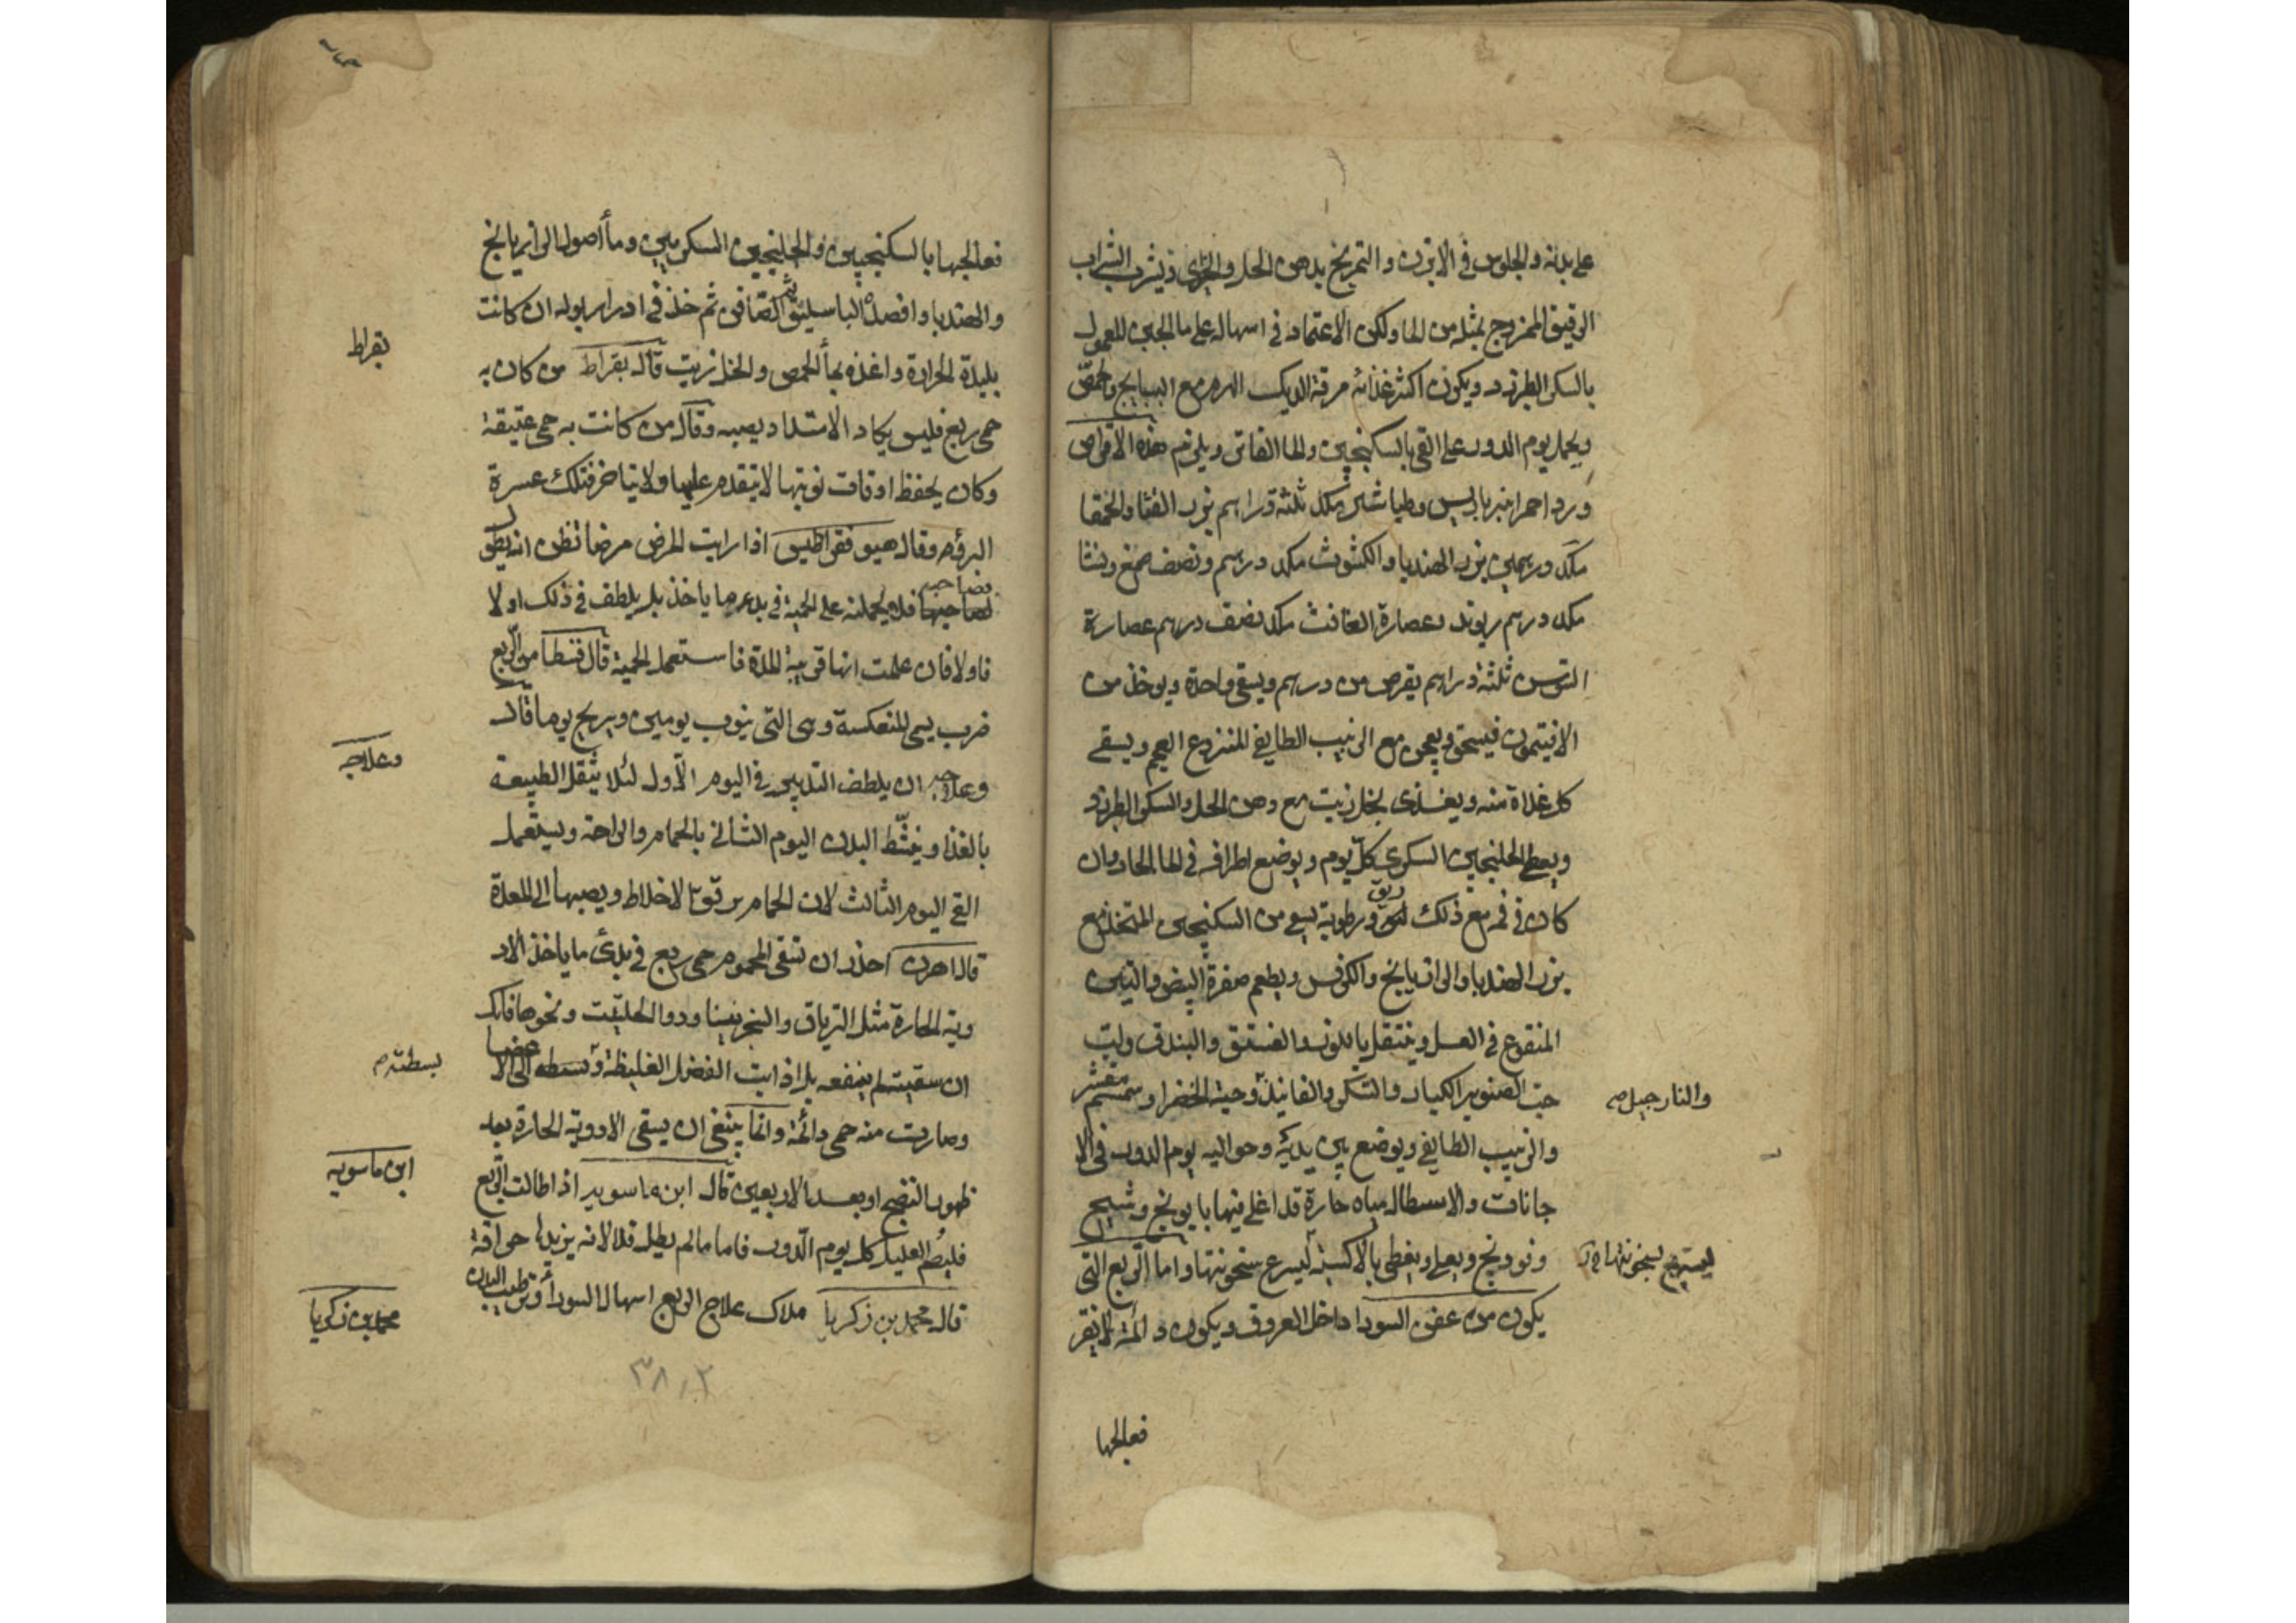 على بدنه والجلوس في الابزن والتمريخ بدهن الحل والخيرى ويشرب الشراب
الرقيق الممزوج بمثله من الما وليكن الاعتماد في اسهاله على ما الجبن المعمول
بالسكر الطبرزد ويكون اكثر غذائه مرقة الديك الهرم مع البسبايج والحمص
ويحمل يوم الدور على القى بالسكنجبين والما الفاتر ويلزم هذه الاقراص
ورد احمر انبرباريس وطباشير مكد ثلثة دراهم بزر القثا والحمقا
مكد درهمين بزر الهندبا والكشوث مكد درهم ونصف صمغ ونشا
مكد درهم ريوند وعصارة الغافث مكد نصف درهم عصارة
السوس ثلثة دراهم يقرص من درهم ويسقى واحدة ويوخذ من
الافيتمون فيسحق ويعجن مع الزبيب الطايفي المنزوع العجم ويسقى
كل غداة منه ويغذى بخل زيت مع دهن الحل والسكر الطبرزد
ويعطى الجلنجبين السكرى كل يوم ويوضع اطرافه في الما الحار وان
كان في فمه مع ذلك ريق ورطوبة يسقى من السكنجبين المتخذ مع
بزر الهندبا والرازيانج والكرفس ويطعم صفرة البيض والتين
المنقوع في العسل ويتنقل باللوز والفستق والبندق ولب
حب الصنوبر الكبار والسكر والفانيذ وحبة الخضرا وسمسم مقشر
والنارجيل صح
والزبيب الطايفي ويوضع بين يديه وحواليه يوم الدور في الا
جانات والاسطال مياه حارة قد اغلى فيها بابونج وشيح
وفودنج ويعلى ويغطى بالاكسية ليسرع سخونتها واما الربع التى
يكون من عفن السودا داخل العروق ويكون دائمة لا تفتر
فعالجها
فعالجها بالسكنجبين والجلنجبين السكريين وما أصول الرازيانج
والهندبا وافصده الباسليق ثم الصافن ثم خذ في ادرار بوله ان كانت
بليدة الحرارة واغذه بما الحمص والخل زيت قال بقراط من كان به
بقراط
حمى ربع فليس يكاد الامتداد يصيبه وقال من كانت به حمى عتيقة
وكان يحفظ اوقات نوبتها لا يتقدم عليها ولا يتاخر فتلك عسرة
البرؤ وقال هيوفقراطيس اذا رايت المرض مرضا تظن انه يطول
بصاحبه فلا يحملنه على الحمية في بدء ما ياخذ بل يلطف في ذلك اولا
فاولا فان علمت انها قريبة المدة فاستعمل الحمية قال قسطا من الربع
ضرب يسمى المنعكسة وهى التى ينوب يومين ويريح يوما قال
وعلاجه
وعلاجه ان يلطف التدبير في اليوم الاول لئلا يثقل الطبيعة
بالغذا وينشط البدن اليوم الثانى بالحمام والراحة ويستعمل
القى اليوم الثالث لان الحمام يرقق الاخلاط ويصبها الى المعدة
قال اهرن احذر ان تسقى المحموم حمى ربع في بدئ ما ياخذ الاد
وية الحارة مثل الترياق والسجزينا ودوا الحلتيت ونحوها فانك
ان سقيته لم ينفعه بل اذابت الفضول الغليظة وبسطته الى الاعضا
بسطته م
وصارت منه حمى دائمة وانما ينبغى ان يسقى الادوية الحارة بعد
ظهور النضج او بعد الاربعين قال ابن ماسويه اذا طالت الربع
ابن ماسويه
فليصم العليل كل يوم الدور فاما ما لم يطل فلا لانه يزيدها حراقة
قال محمد بن زكريا ملاك علاج الربع اسهال السودا وترطيب البدن
محمد بن زكريا
٣٨٠٢